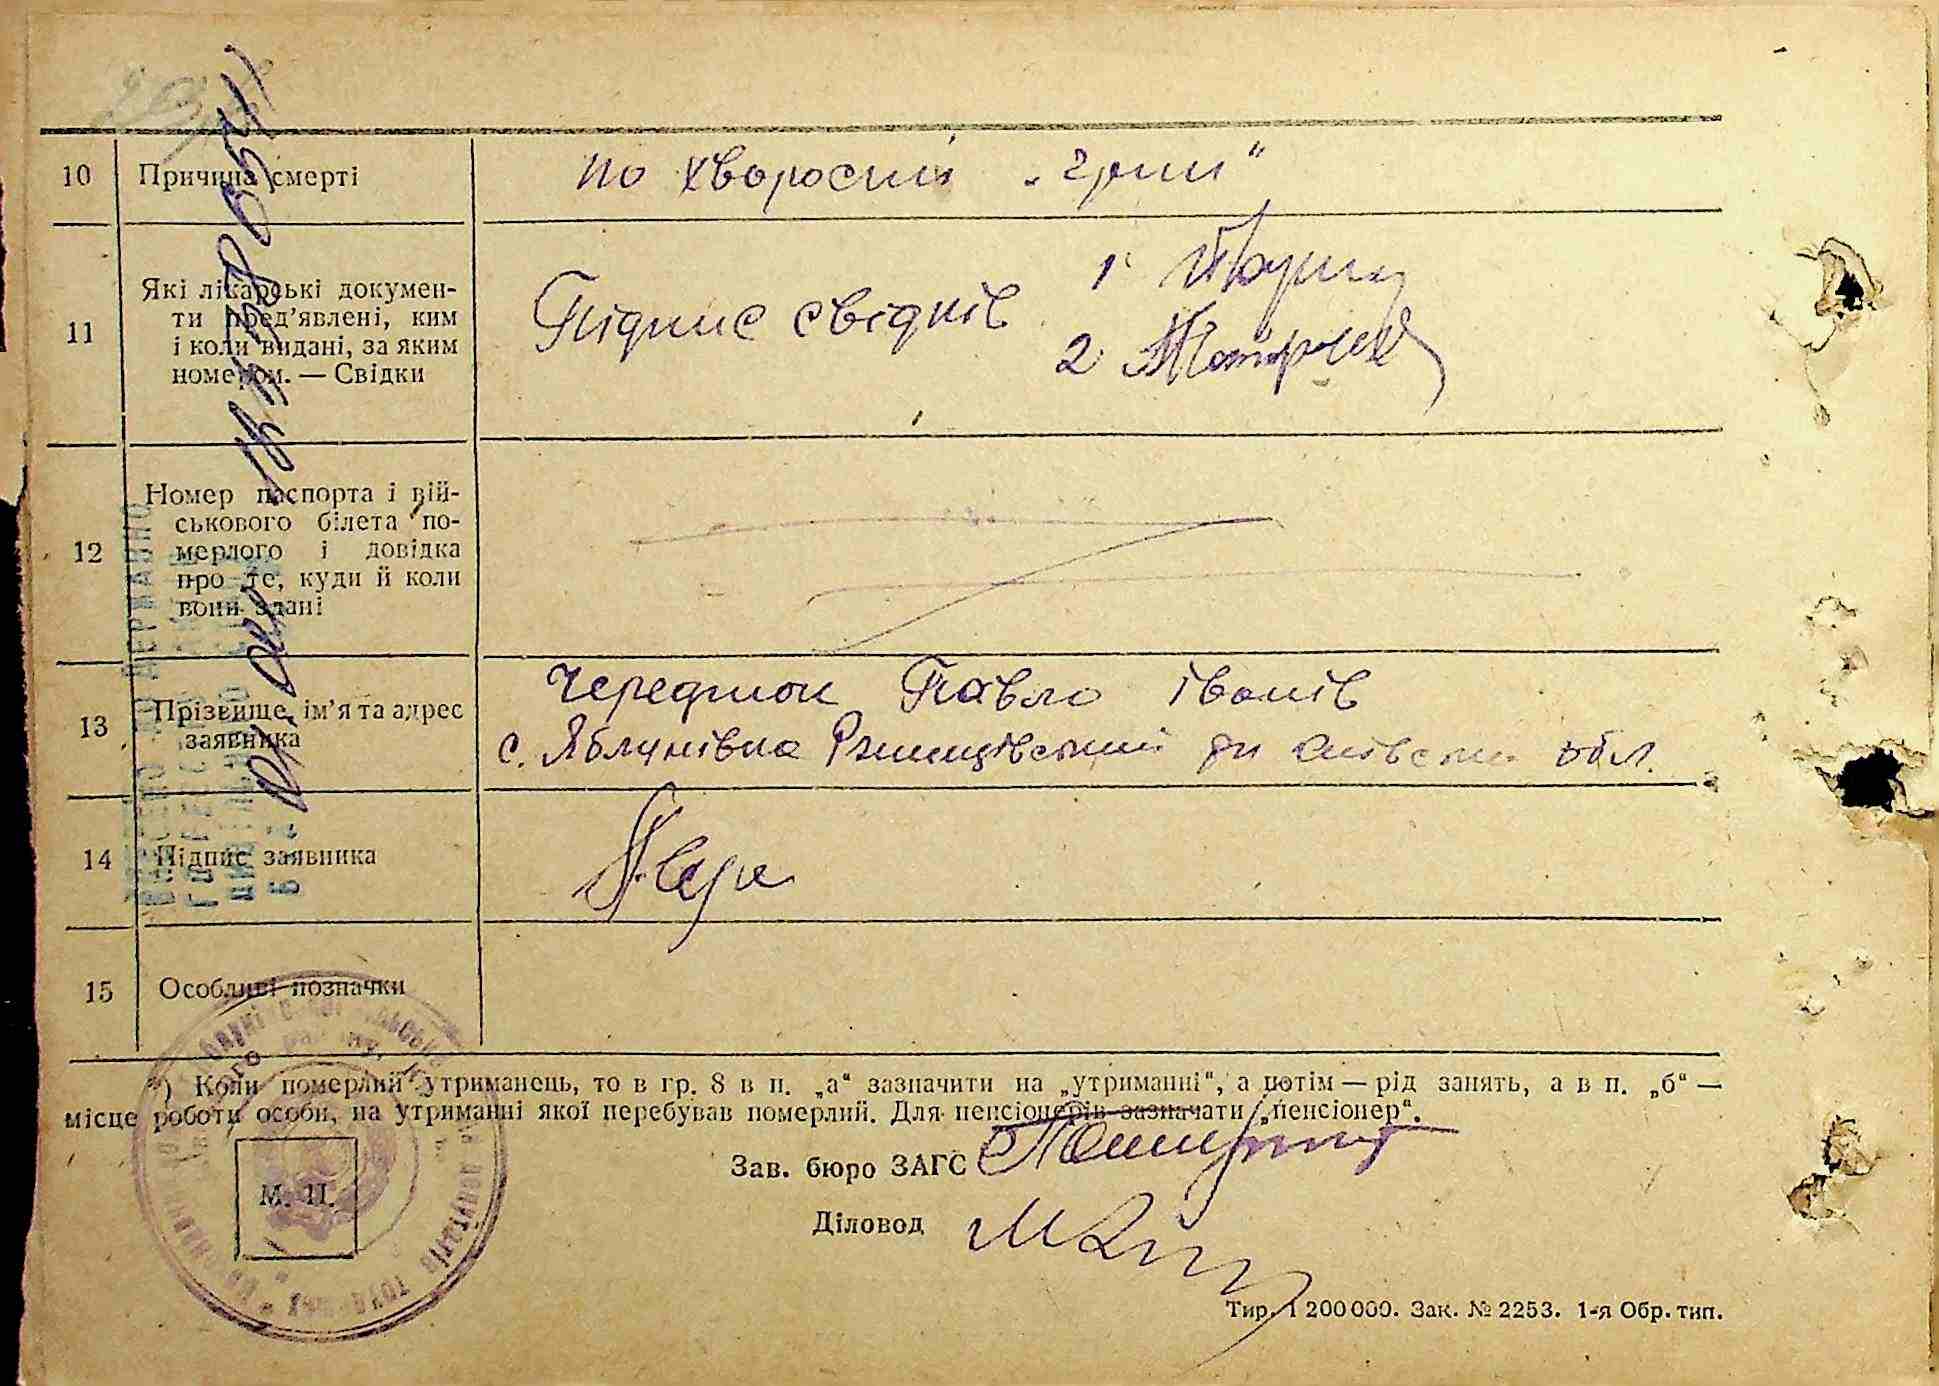 10 Причина смерті по хворости „грип“
11 Які лікарські докумен-
ти пред’явлені, ким
і коли видані, за яким
номером. — Свідки
Підпис свідків 1
2
12 Номер паспорта і вій-
ськового білета по-
мерлого і довідка
про те, куди й коли
вони здані
13 Прізвище, ім’я та адрес
заявника
Чередник Павло Іванів
с. Яблунівка Ржищівський р-н Київськ обл.
14 Підпис заявника
15 Особливі позначки
) Коли померлий утриманець, то в гр. 8 в п. „а“ зазначити на „утриманні“, а потім — рід занять, а в п. „б“ —
місце роботи особи, на утриманні якої перебував померлий. Для пенсіонерів зазначати „пенсіонер“.
Зав. бюро ЗАГС
М. П.
Діловод
Тир. 1 200 000. Зак. № 2253. 1-я Обр. тип.